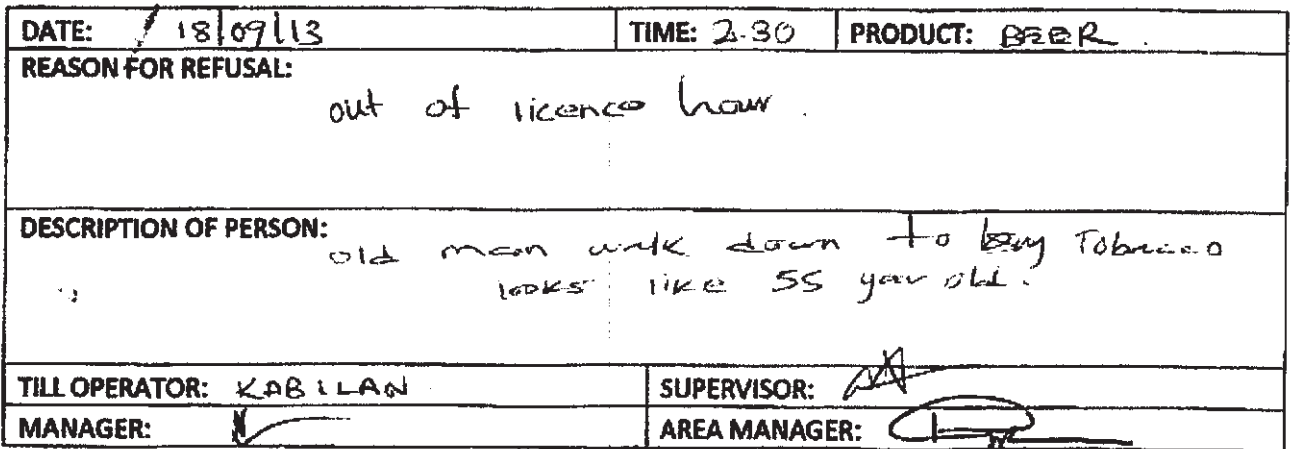 DATE: 18/09/13 TIME: 2.30 PRODUCT: BEER.
REASON FOR REFUSAL:
out of licence hour.
DESCRIPTION OF PERSON:
old man walk down to buy Tobacco
looks like 55 year old.
TILL OPERATOR: KABILAN SUPERVISOR:
MANAGER: AREA MANAGER: